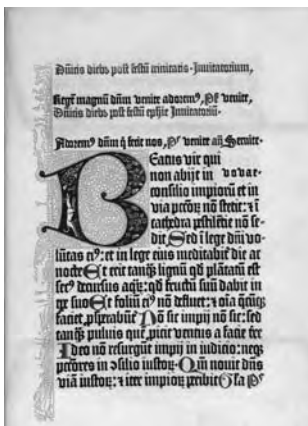 Dñicis diebꝫ post festũ trinitatis· Inuitatorium,
Regẽ magnũ dñm venite adoremꝰ, Pˢ venite,
Dñicis diebꝫ post festũ ephie Inuitatoriũ·
Adoremꝰ dñm q̃ fecit nos, Pˢ venite añ Seruite·
Beatus vir qui
non abijt in
consilio impioꝝ et in
via pctõꝝ nõ stetit: ⁊ ĩ
cathedra pestilẽtie nõ se-
dit Sed ĩ lege dñi vo-
lũtas eiꝰ: et in lege eius meditabit̃ die ac
nocte Et erit tanꝗ̃ lignũ qd̃ plãtatũ est
secꝰ decursus aqꝝ: qd̃ fructũ suũ dabit in
tp̃e suo Et foliũ eiꝰ nõ defluet: ⁊ oĩa q̃cũqꝫ
faciet ꝓsperabũt̃ Nõ sic impij nõ sic: sed
tanꝗ̃ puluis quẽ ꝓicit ventus a facie tr̃e
Ideo nõ resurgũt impij in iudicio: neqꝫ
pctõres in ꝯsilio iustoꝝ· Qm̃ nouit dñs
viã iustoꝝ: ⁊ iter impioꝝ peribit Gl̃a Pˢ